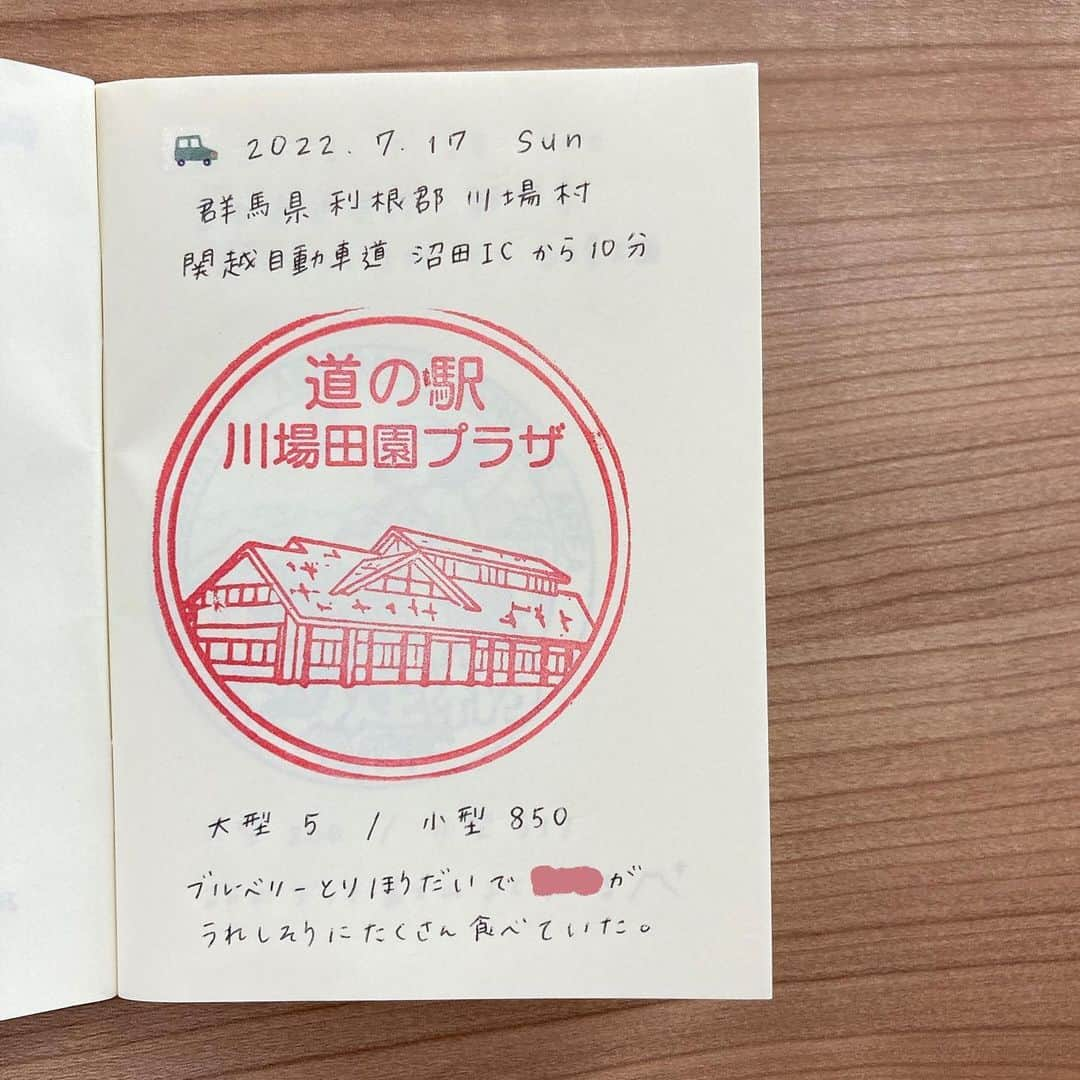 2022.7.17 Sun
群馬県利根郡川場村
関越自動車道 沼田ICから10分
道の駅
川場田園プラザ
大型 5 / 小型 850
ブルーベリーとりほうだいで が
うれしそうにたくさん食べていた。